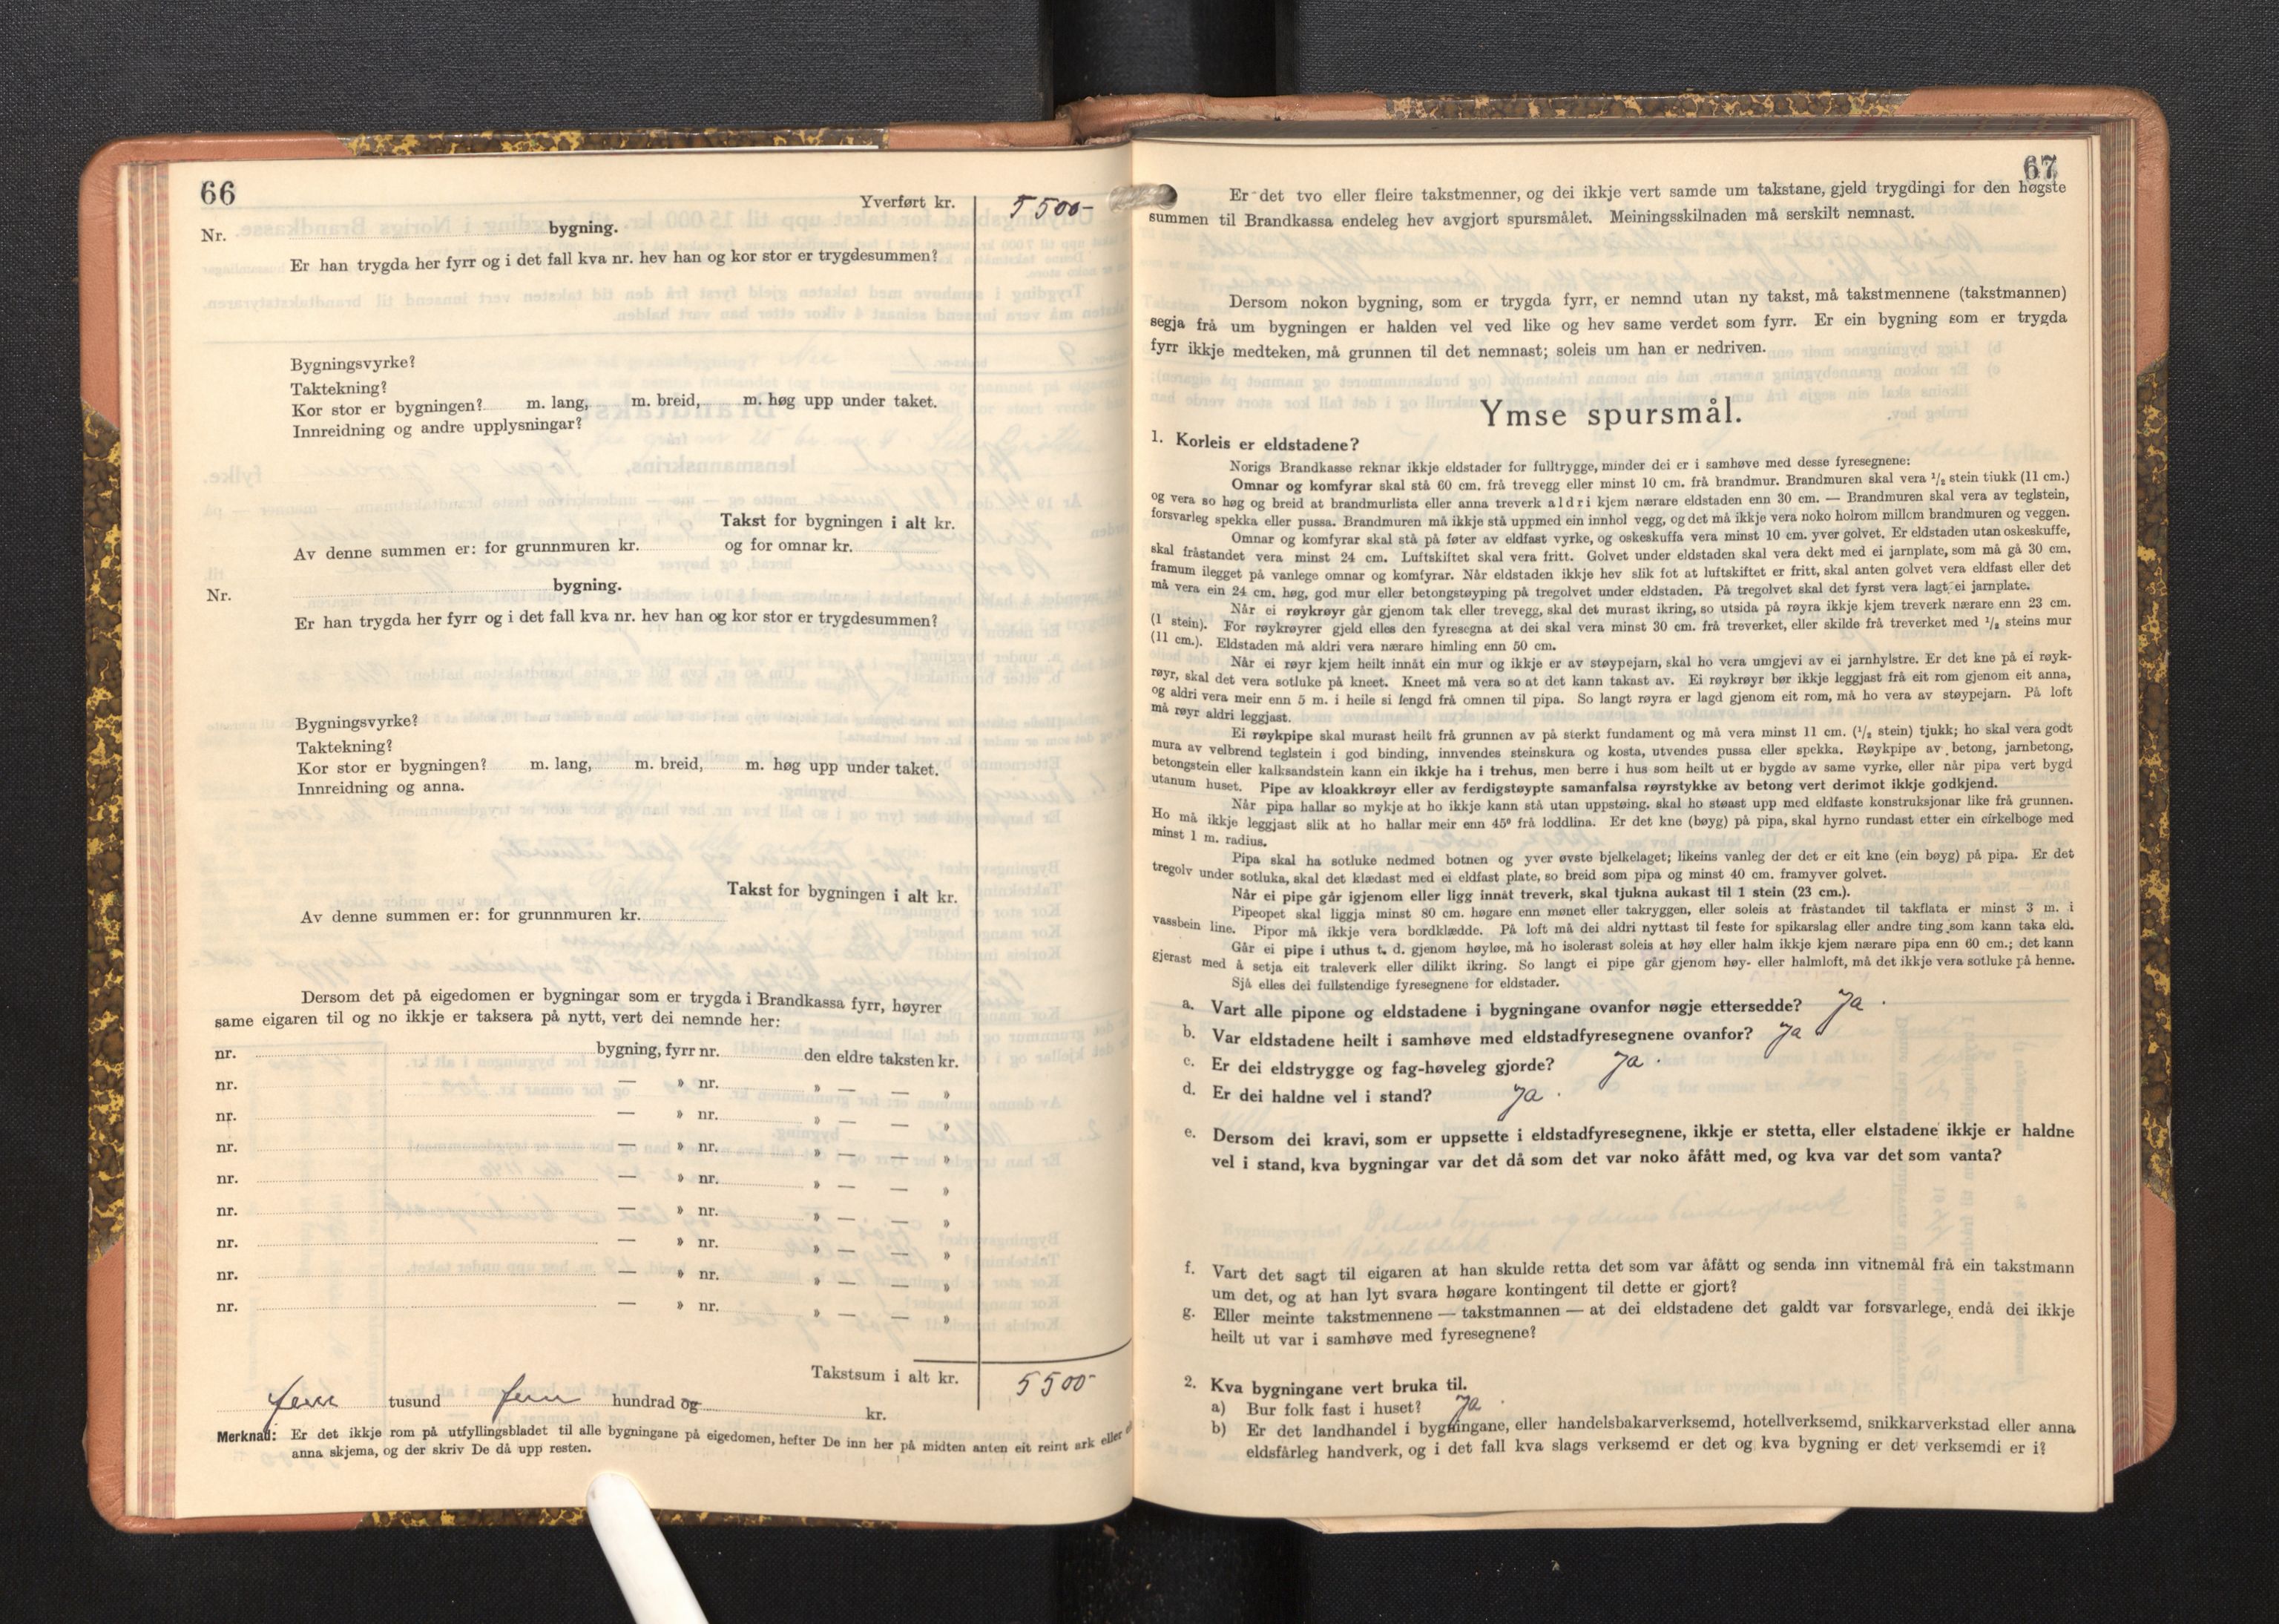 66
Yverført kr. 5500-
Nr. bygning.
Er han trygda her fyrr og i det fall kva nr. hev han og kor stor er trygdesummen?
Bygningsvyrke?
Taktekning?
Kor stor er bygningen? m. lang, m. breid, m. høg upp under taket.
Innreidning og andre upplysningar?
Takst for bygningen i alt kr.
Av denne summen er: for grunnmuren kr. og for omnar kr.
Nr. bygning.
Er han trygda her fyrr og i det fall kva nr. hev han og kor stor er trygdesummen?
Bygningsvyrke?
Taktekning?
Kor stor er bygningen? m. lang, m. breid, m. høg upp under taket.
Innreidning og anna.
Takst for bygningen i alt kr.
Av denne summen er: for grunnmuren kr.
Dersom det på eigedomen er bygningar som er trygda i Brandkassa fyrr, høyrer
same eigaren til og no ikkje er taksera på nytt, vert dei nemnde her:
nr. bygning, fyrr nr. den eldre taksten kr.
nr. — » nr. » — — »
nr. — » nr. » — — »
nr. — » nr. » — — »
nr. — » nr. » — — »
nr. — » nr. » — — »
nr. — » nr. » — — »
nr. — » nr. » — — »
nr. — » nr. » — — »
Takstsum i alt kr. 5500-
fem tusund fem hundrad og kr.
Merknad: Er det ikkje rom på utfyllingsbladet til alle bygningane på eigedomen, hefter De inn her på midten anten eit reint ark eller
anna skjema, og der skriv De då upp resten.
67
Er det tvo eller fleire takstmenner, og dei ikkje vert samde um takstane, gjeld trygdingi for den høgste
summen til Brandkassa endeleg hev avgjort spursmålet. Meiningsskilnaden må serskilt nemnast.
Dersom nokon bygning, som er trygda fyrr, er nemnd utan ny takst, må takstmennene (takstmannen)
segja frå um bygningen er halden vel ved like og hev same verdet som fyrr. Er ein bygning som er trygda
fyrr ikkje medteken, må grunnen til det nemnast; soleis um han er nedriven.
Ymse spursmål.
1. Korleis er eldstadene?
Norigs Brandkasse reknar ikkje eldstader for fulltrygge, minder dei er i samhøve med desse fyresegnene:
Omnar og komfyrar skal stå 60 cm. frå trevegg eller minst 10 cm. frå brandmur. Brandmuren skal vera 1/2 stein tiukk (11 cm.)
og vera so høg og breid at brandmurlista eller anna treverk aldri kjem nærare eldstaden enn 30 cm. — Brandmuren skal vera av teglstein,
forsvarleg spekka eller pussa. Brandmuren må ikkje stå uppmed ein innhol vegg, og det må ikkje vera noko holrom millom brandmuren og veggen.
Omnar og komfyrar skal stå på føter av eldfast vyrke, og oskeskuffa vera minst 10 cm. yver golvet. Er eldstaden utan oskeskuffe,
skal fråstandet vera minst 24 cm. Luftskiftet skal vera fritt. Golvet under eldstaden skal vera dekt med ei jarnplate, som må gå 30 cm.
framum ilegget på vanlege omnar og komfyrar. Når eldstaden ikkje hev slik fot at luftskiftet er fritt, skal anten golvet vera eldfast eller det
må vera ein 24 cm. høg, god mur eller betongstøyping på tregolvet under eldstaden. På tregolvet skal det fyrst vera lagt ei jarnplate.
Når ei røykrøyr går gjenom tak eller trevegg, skal det murast ikring, so utsida på røyra ikkje kjem treverk nærare enn 23 cm.
(1 stein). For røykrøyrer gjeld elles den fyresegna at dei skal vera minst 30 cm. frå treverket, eller skilde frå treverket med 1/2 steins mur
(11 cm.). Eldstaden må aldri vera nærare himling enn 50 cm.
Når ei røyr kjem heilt innåt ein mur og ikkje er av støypejarn, skal ho vera umgjevi av ei jarnhylstre. Er det kne på ei røyk-
røyr, skal det vera sotluke på kneet. Kneet må vera so at det kann takast av. Ei røykrøyr bør ikkje leggjast frå eit rom gjenom eit anna,
og aldri vera meir enn 5 m. i heile si lengd frå omnen til pipa. So langt røyra er lagd gjenom eit rom, må ho vera av støypejarn. På loft
må røyr aldri leggjast.
Ei røykpipe skal murast heilt frå grunnen av på sterkt fundament og må vera minst 11 cm. (1/2 stein) tjukk; ho skal vera godt
mura av velbrend teglstein i god binding, innvendes steinskura og kosta, utvendes pussa eller spekka. Røykpipe av betong, jarnbetong,
betongstein eller kalksandstein kann ein ikkje ha i trehus, men berre i hus som heilt ut er bygde av same vyrke, eller når pipa vert bygd
utanum huset. Pipe av kloakkrøyr eller av ferdigstøypte samanfalsa røyrstykke av betong vert derimot ikkje godkjend.
Når pipa hallar so mykje at ho ikkje kann stå utan uppstøing. skal ho støast upp med eldfaste konstruksjonar like frå grunnen.
Ho må ikkje leggjast slik at ho hallar meir enn 45° frå loddlina. Er det kne (bøyg) på pipa, skal hyrno rundast etter ein cirkelboge med
minst 1 m. radius.
Pipa skal ha sotluke nedmed botnen og yver øvste bjelkelaget; likeins vanleg der det er eit kne (ein bøyg) på pipa. Er det
tregolv under sotluka, skal det klædast med ei eldfast plate, so breid som pipa og minst 40 cm. framyver golvet.
Når ei pipe går igjenom eller ligg innåt treverk, skal tjukna aukast til 1 stein (23 cm.).
Pipeopet skal liggja minst 80 cm. høgare enn mønet eller takryggen, eller soleis at fråstandet til takflata er minst 3 m. i
vassbein line. Pipor må ikkje vera bordklædde. På loft må dei aldri nyttast til feste for spikarslag eller andre ting som kann taka eld.
Går ei pipe i uthus t. d. gjenom høyløe, må ho isolerast soleis at høy eller halm ikkje kjem nærare pipa enn 60 cm.; det kann
gjerast med å setja eit traleverk eller dilikt ikring. So langt ei pipe går gjenom høy- eller halmloft, må det ikkje vera sotluke på henne.
Sjå elles dei fullstendige fyresegnene for eldstader.
a. Vart alle pipone og eldstadene i bygningane ovanfor nøgje ettersedde? Ja.
b. Var eldstadene heilt i samhøve med eldstadfyresegnene ovanfor? Ja
c. Er dei eldstrygge og fag-høveleg gjorde? Ja.
d. Er dei haldne vel i stand? Ja.
e. Dersom dei kravi, som er uppsette i eldstadfyresegnene, ikkje er stetta, eller elstadene ikkje er haldne
vel i stand, kva bygningar var det då som det var noko åfått med, og kva var det som vanta?
f. Vart det sagt til eigaren at han skulde retta det som var åfått og senda inn vitnemål frå ein takstmann
um det, og at han lyt svara høgare kontingent til dette er gjort?
g. Eller meinte takstmennene — takstmannen — at dei eldstadene det galdt var forsvarlege, endå dei ikkje
heilt ut var i samhøve med fyresegnene?
2. Kva bygningane vert bruka til.
a) Bur folk fast i huset? Ja.
b) Er det landhandel i bygningane, eller handelsbakarverksemd, hotellverksemd, snikkarverkstad eller anna
eldsfårleg handverk, og i det fall kva slags verksemd er det og kva bygning er det verksemdi er i?